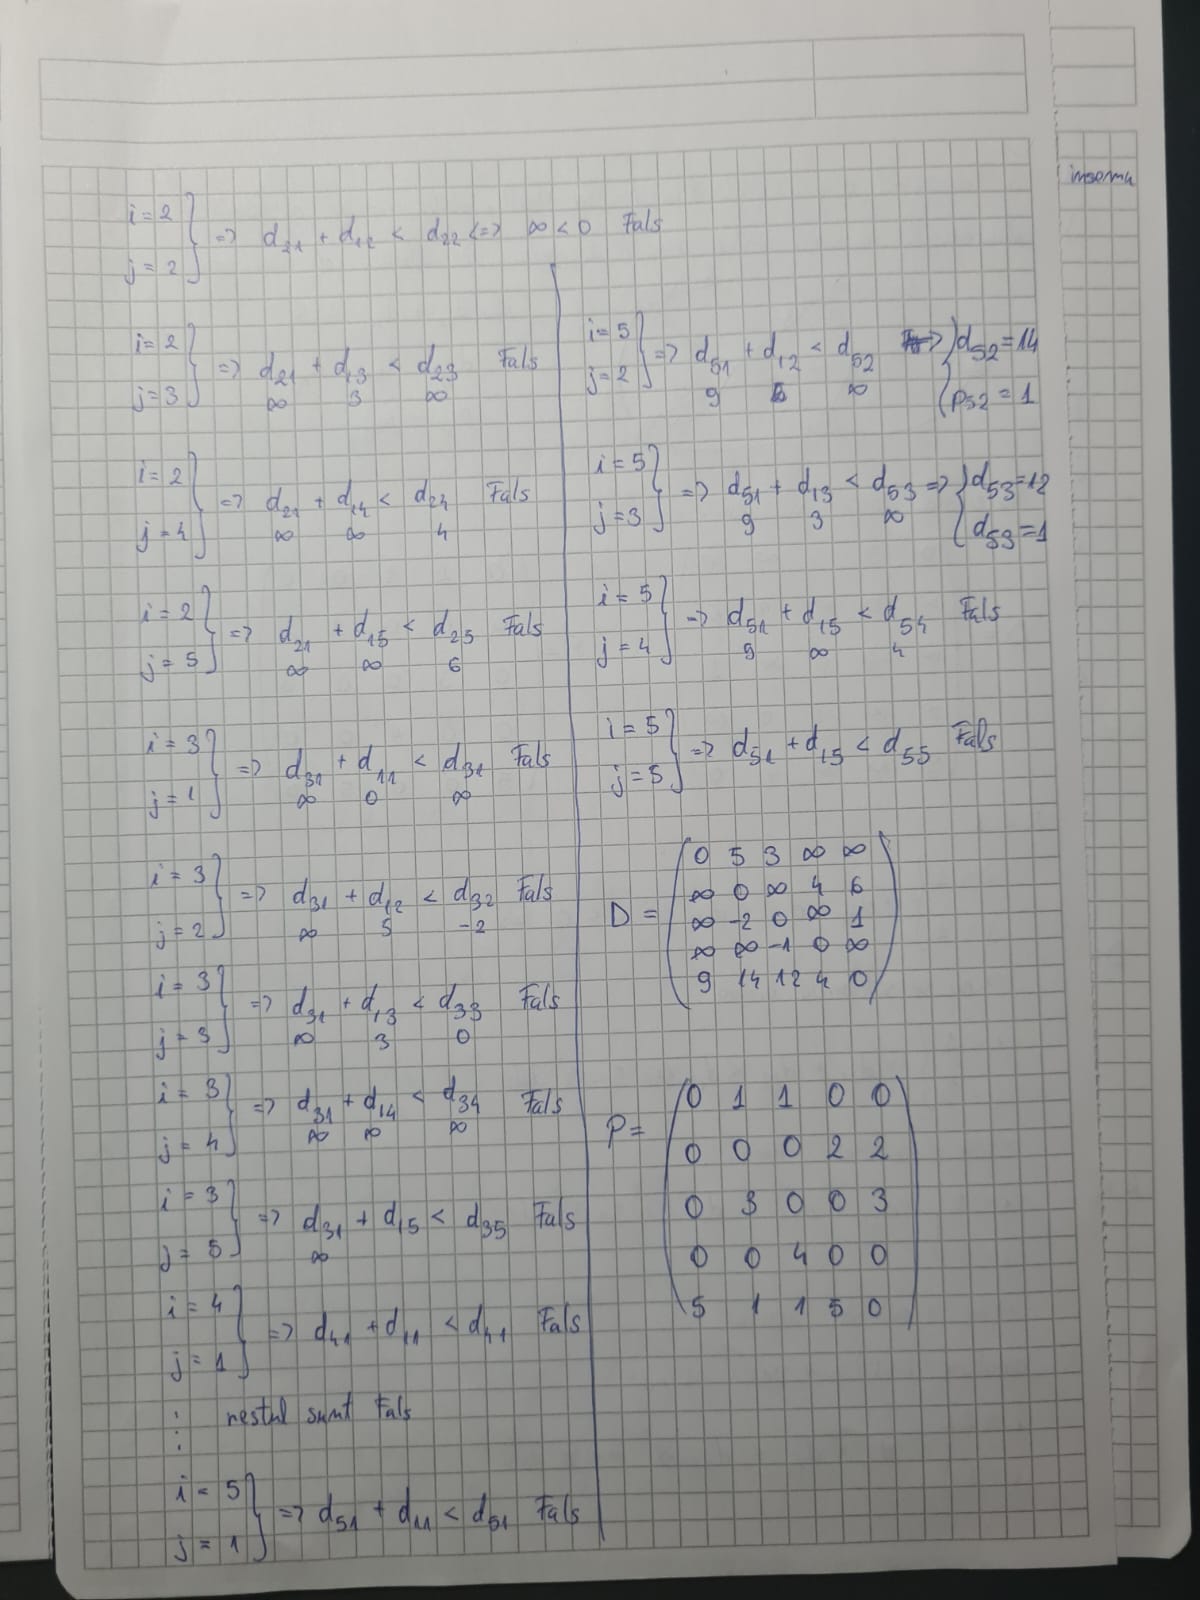 insemn
i = 2
j = 2
=> d21 + d12 < d22 <=> ∞ < 0 Fals
i = 2
j = 3
=> d21 + d13 < d23 Fals
∞ 3 ∞
i = 2
j = 4
=> d21 + d14 < d24 Fals
∞ ∞ 4
i = 2
j = 5
=> d21 + d15 < d25 Fals
∞ ∞ 6
i = 3
j = 1
=> d31 + d11 < d31 Fals
∞ 0 ∞
i = 3
j = 2
=> d31 + d12 < d32 Fals
∞ 5 -2
i = 3
j = 3
=> d31 + d13 < d33 Fals
∞ 3 0
i = 3
j = 4
=> d31 + d14 < d34 Fals
∞ ∞ ∞
i = 3
j = 5
=> d31 + d15 < d35 Fals
∞
i = 4
j = 1
=> d41 + d11 < d41 Fals
: restul sunt Fals
:
i = 5
j = 1
=> d51 + d11 < d51 Fals
i = 5
j = 2
=> d51 + d12 < d52 => d52 = 14
9 5 ∞ p52 = 1
i = 5
j = 3
=> d51 + d13 < d53 => d53 = 12
9 3 ∞ d53 = 1
i = 5
j = 4
=> d51 + d15 < d54 Fals
9 ∞ 4
i = 5
j = 5
=> d51 + d15 < d55 Fals
D =
0 5 3 ∞ ∞
∞ 0 ∞ 4 6
∞ -2 0 ∞ 1
∞ ∞ -1 0 ∞
9 14 12 4 0
P =
0 1 1 0 0
0 0 0 2 2
0 3 0 0 3
0 0 4 0 0
5 1 1 5 0